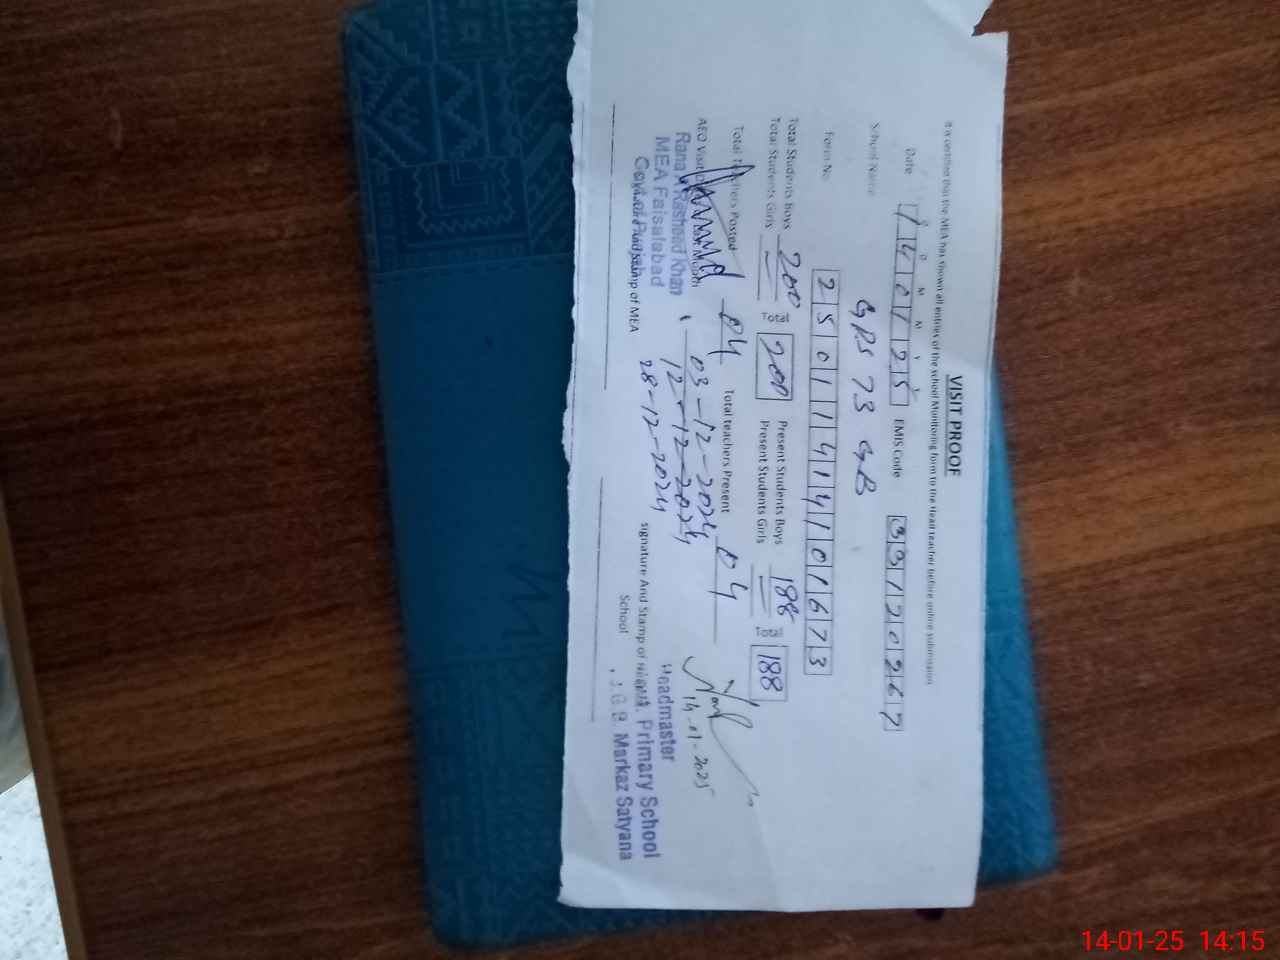 VISIT PROOF
It is certified that the MEA has shown all entries of the school Monitoring form to the Head teacher before online submission
D D M M Y Y
Date 140125 EMIS Code 33120267
School Name GPS 73 GB
Form No 25011414101673
Total Students Boys 200 Total 200 Present Students Boys 188 188
Total Students Girls — Present Students Girls —
Total Teachers Posted 04 Total teachers Present 04
AEO Visit Month 03-12-2024
12-12-2024
28-12-2024
14-01-2025
Rana Rasheed Khan
MEA Faisalabad
Stamp of MEA
signature And Stamp of
School
Headmaster
Primary School
G.B. Markaz Satyana
14-01-25 14:15